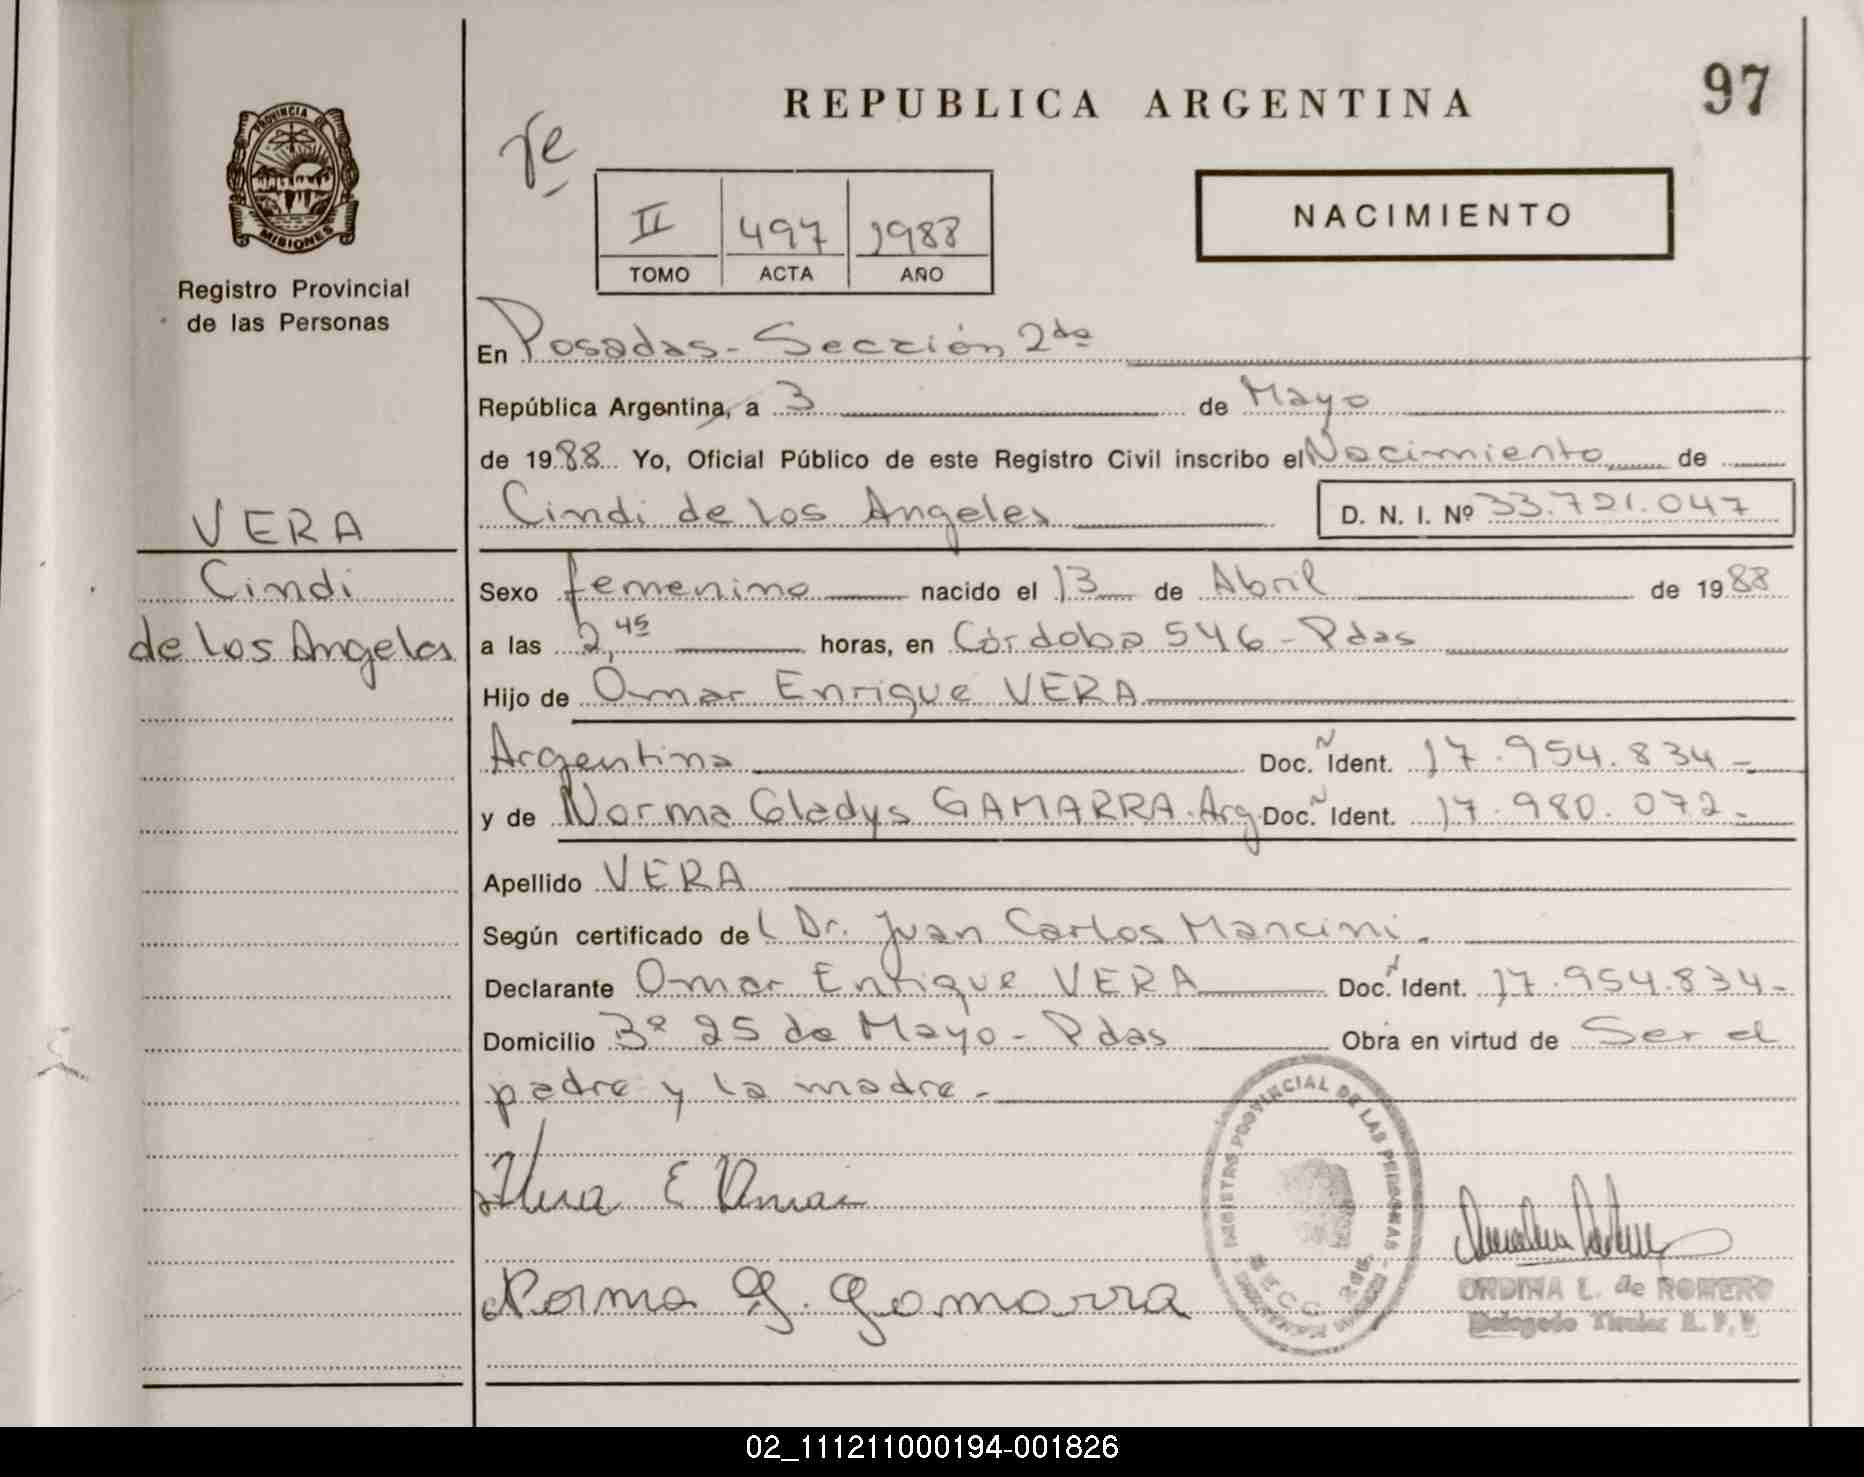 REPUBLICA ARGENTINA
97
PROVINCIA
MISIONES
Registro Provincial
de las Personas
II 497 1988
TOMO ACTA AÑO
NACIMIENTO
En Posadas - Sección 2da
República Argentina, a 3 de Mayo
de 1988 Yo, Oficial Público de este Registro Civil inscribo el Nacimiento de
Cindi de los Angeles D. N. I. Nº 33.721.047
VERA
Cindi
de los Angeles
Sexo femenino nacido el 13 de Abril de 1988
a las 2,45 horas, en Córdoba 546 - Pdas
Hijo de Omar Enrique VERA
Argentina Doc. Ident. 17.954.834 -
y de Norma Gladys GAMARRA. Arg. Doc. Ident. 17.980.072 -
Apellido VERA
Según certificado del Dr. Juan Carlos Mancini.
Declarante Omar Enrique VERA Doc. Ident. 17.954.834 -
Domicilio Bº 25 de Mayo - Pdas Obra en virtud de Ser el
padre y la madre. -
Vera E Omar
Norma G. Gamarra
REGISTRO PROVINCIAL DE LAS PERSONAS
L. de ROMERO
Delegado Titular
02_111211000194-001826